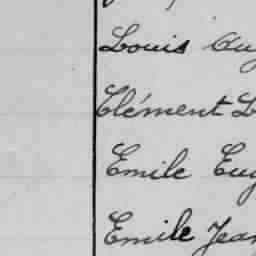 Louis Aug
Clément L
Emile Eug
Emile Jean